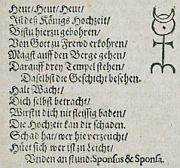 Heut / Heut / Heut /
Ist deß Königs Hochzeit /
Bistu hierzu gebohren /
Von Gott zu Frewd erkohren /
Magst auff den Berge gehen /
Darauff drey Tempel stehen /
Daselbst die Geschicht besehen.
Halt Wacht /
Dich selbst betracht /
Wirstu dich nit fleissig baden /
Die Hochzeit kan dir schaden.
Schad hat / wer hie verzeucht /
Hüet sich wer ist zu Leicht /
Unden an stund: Sponsus & Sponsa.